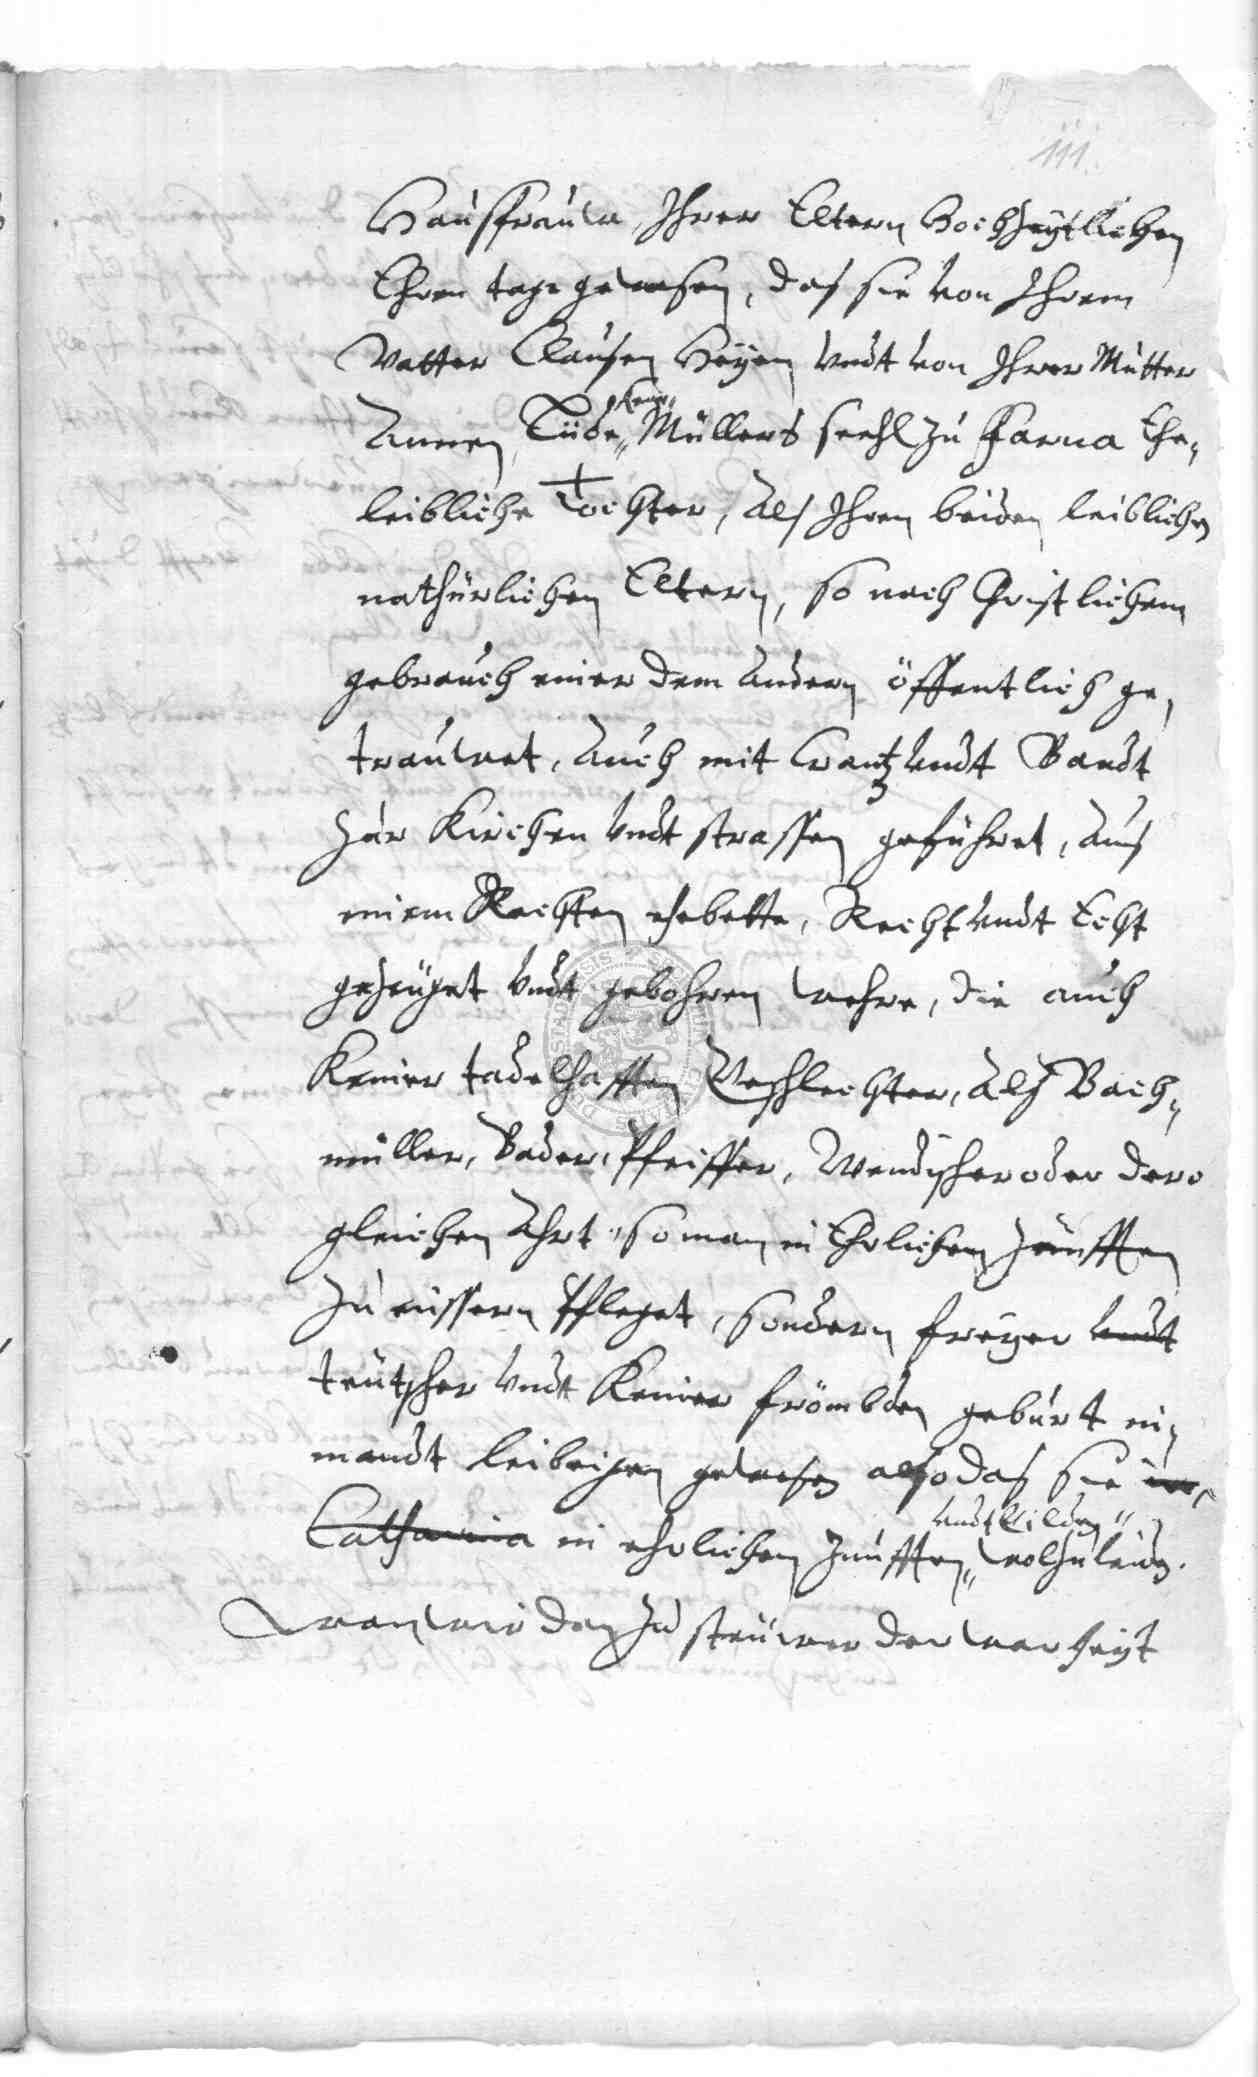 111.
Haußfrauw, Ihrer Eltern Hochzeytlichen
Ehren tage gewesen, daß sie von Ihrem
Vatter Claußen Heyen vndt von Ihrer Mutter
Annen, Lüde„ Müllers seehl zu Farna Ehe„
leibliche Tochter, Alß Ihren beiden leiblichen
nathürlichen Eltern, so nach Christlichem
gebrauch einer dem Andern öffentlich ge„
trauwet, Auch mit Crantz vndt Bandt
zur Kirchen vndt strassen geführet, Auß
einem Rechten ehebette, Recht vndt Echt
gezeuget vndt gebohren wehre, die auch
Keiner tadelhafften Geschlechter, Alß Bach„
müller, Bader, Pfeiffer, Wendischer oder dero
gleichen Ahrt, so man in Ehrlichen Zünfften
zu eussern Pfleget, sondern freyer vndt
teutscher vndt Keiner frömbden geburt nie„
mandt leibeigen gewesen also daß sie
vndt Gilden"
Catharina in ehrlichen Zunfften„ wol zuleid.
Wan wir dan zu steuwer der warheyt